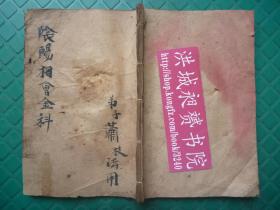 陰陽相會金科
弟子蕭
用
洪城昶赟书院
http://shop.kongfz.com/book/3240